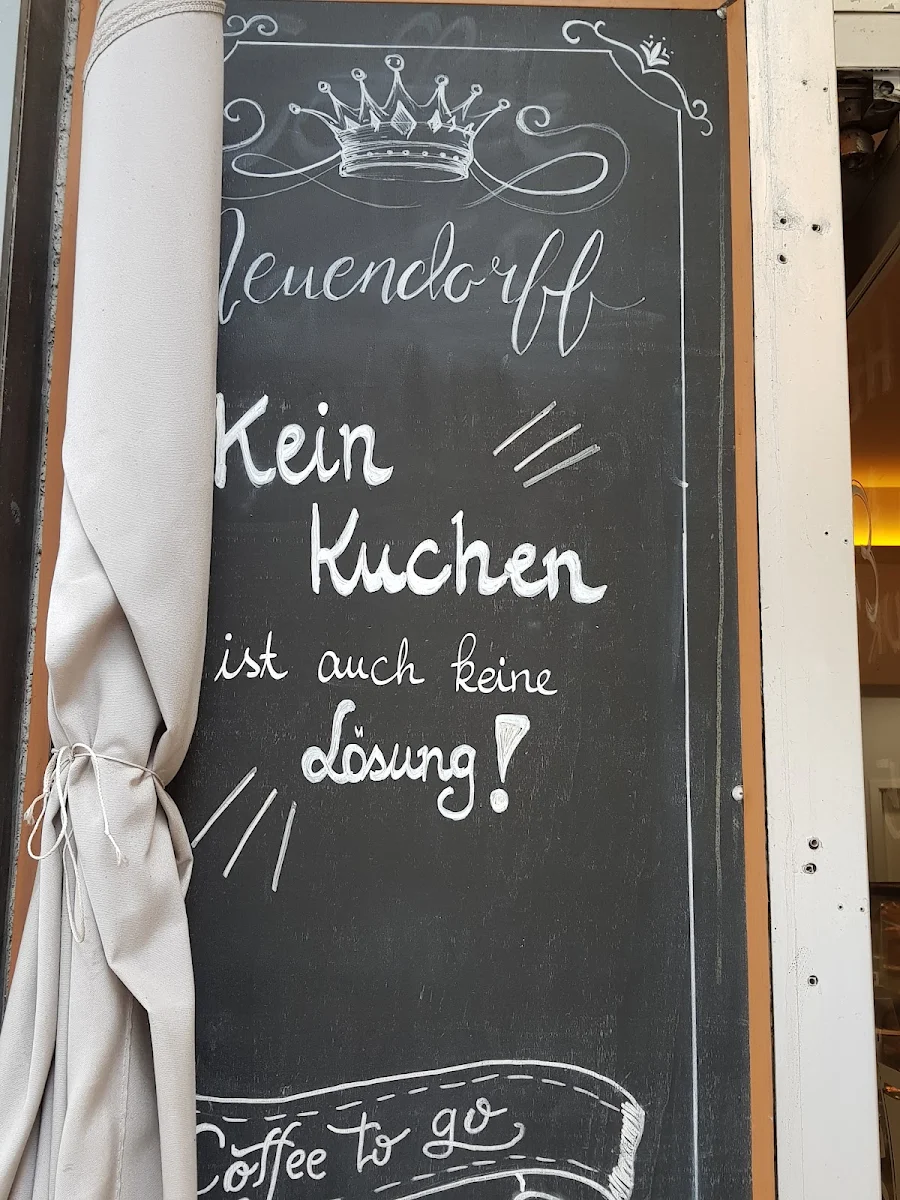 Neuendorff
Kein
Kuchen
ist auch keine
Lösung!
Coffee to go